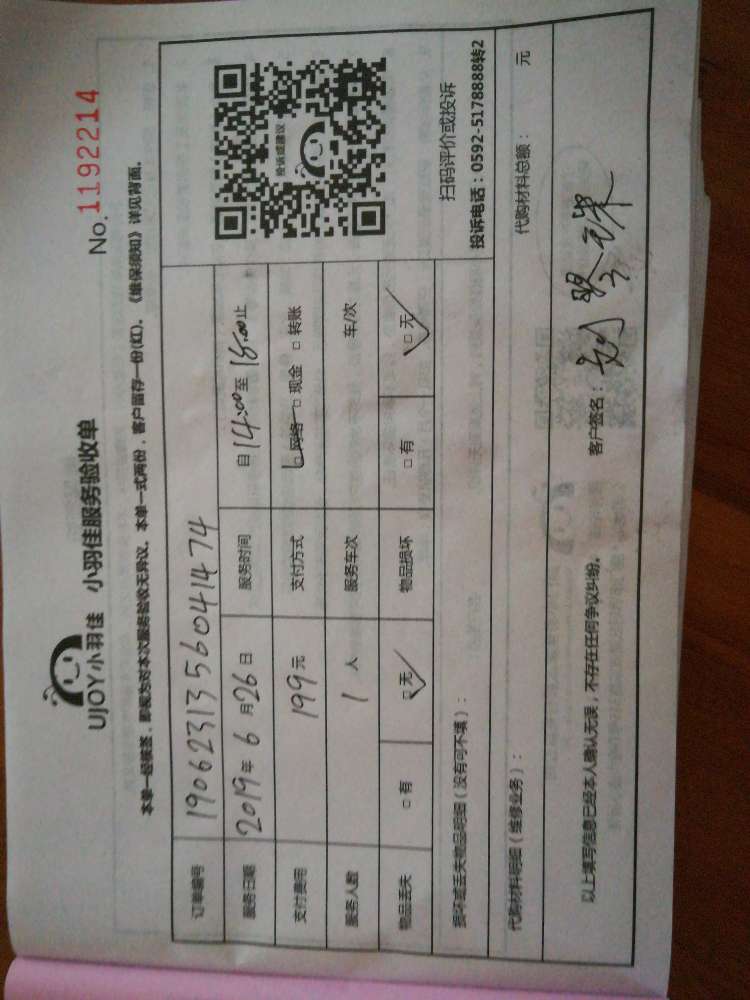 UJOY小羽佳 小羽佳服务验收单
No.1192214
本单一经核签，即视为对本次服务验收无异议。本单一式两份，客户留存一份(红)。《维保须知》详见背面。
订单编号 1906231356041474
服务日期 2019年6月26日 服务时间 自14:00至18:00止
支付费用 199元 支付方式 □网络 □现金 □转账
服务人数 1人 服务车次 车/次
物品丢失 □有 □无 物品损坏 □有 □无
投诉或建议
扫码评价或投诉
投诉电话：0592-5178888转2
损坏或丢失物品明细（没有可不填）：
代购材料明细（维修业务）： 代购材料总额： 元
以上填写信息已经本人确认无误，不存在任何争议纠纷。 客户签名：